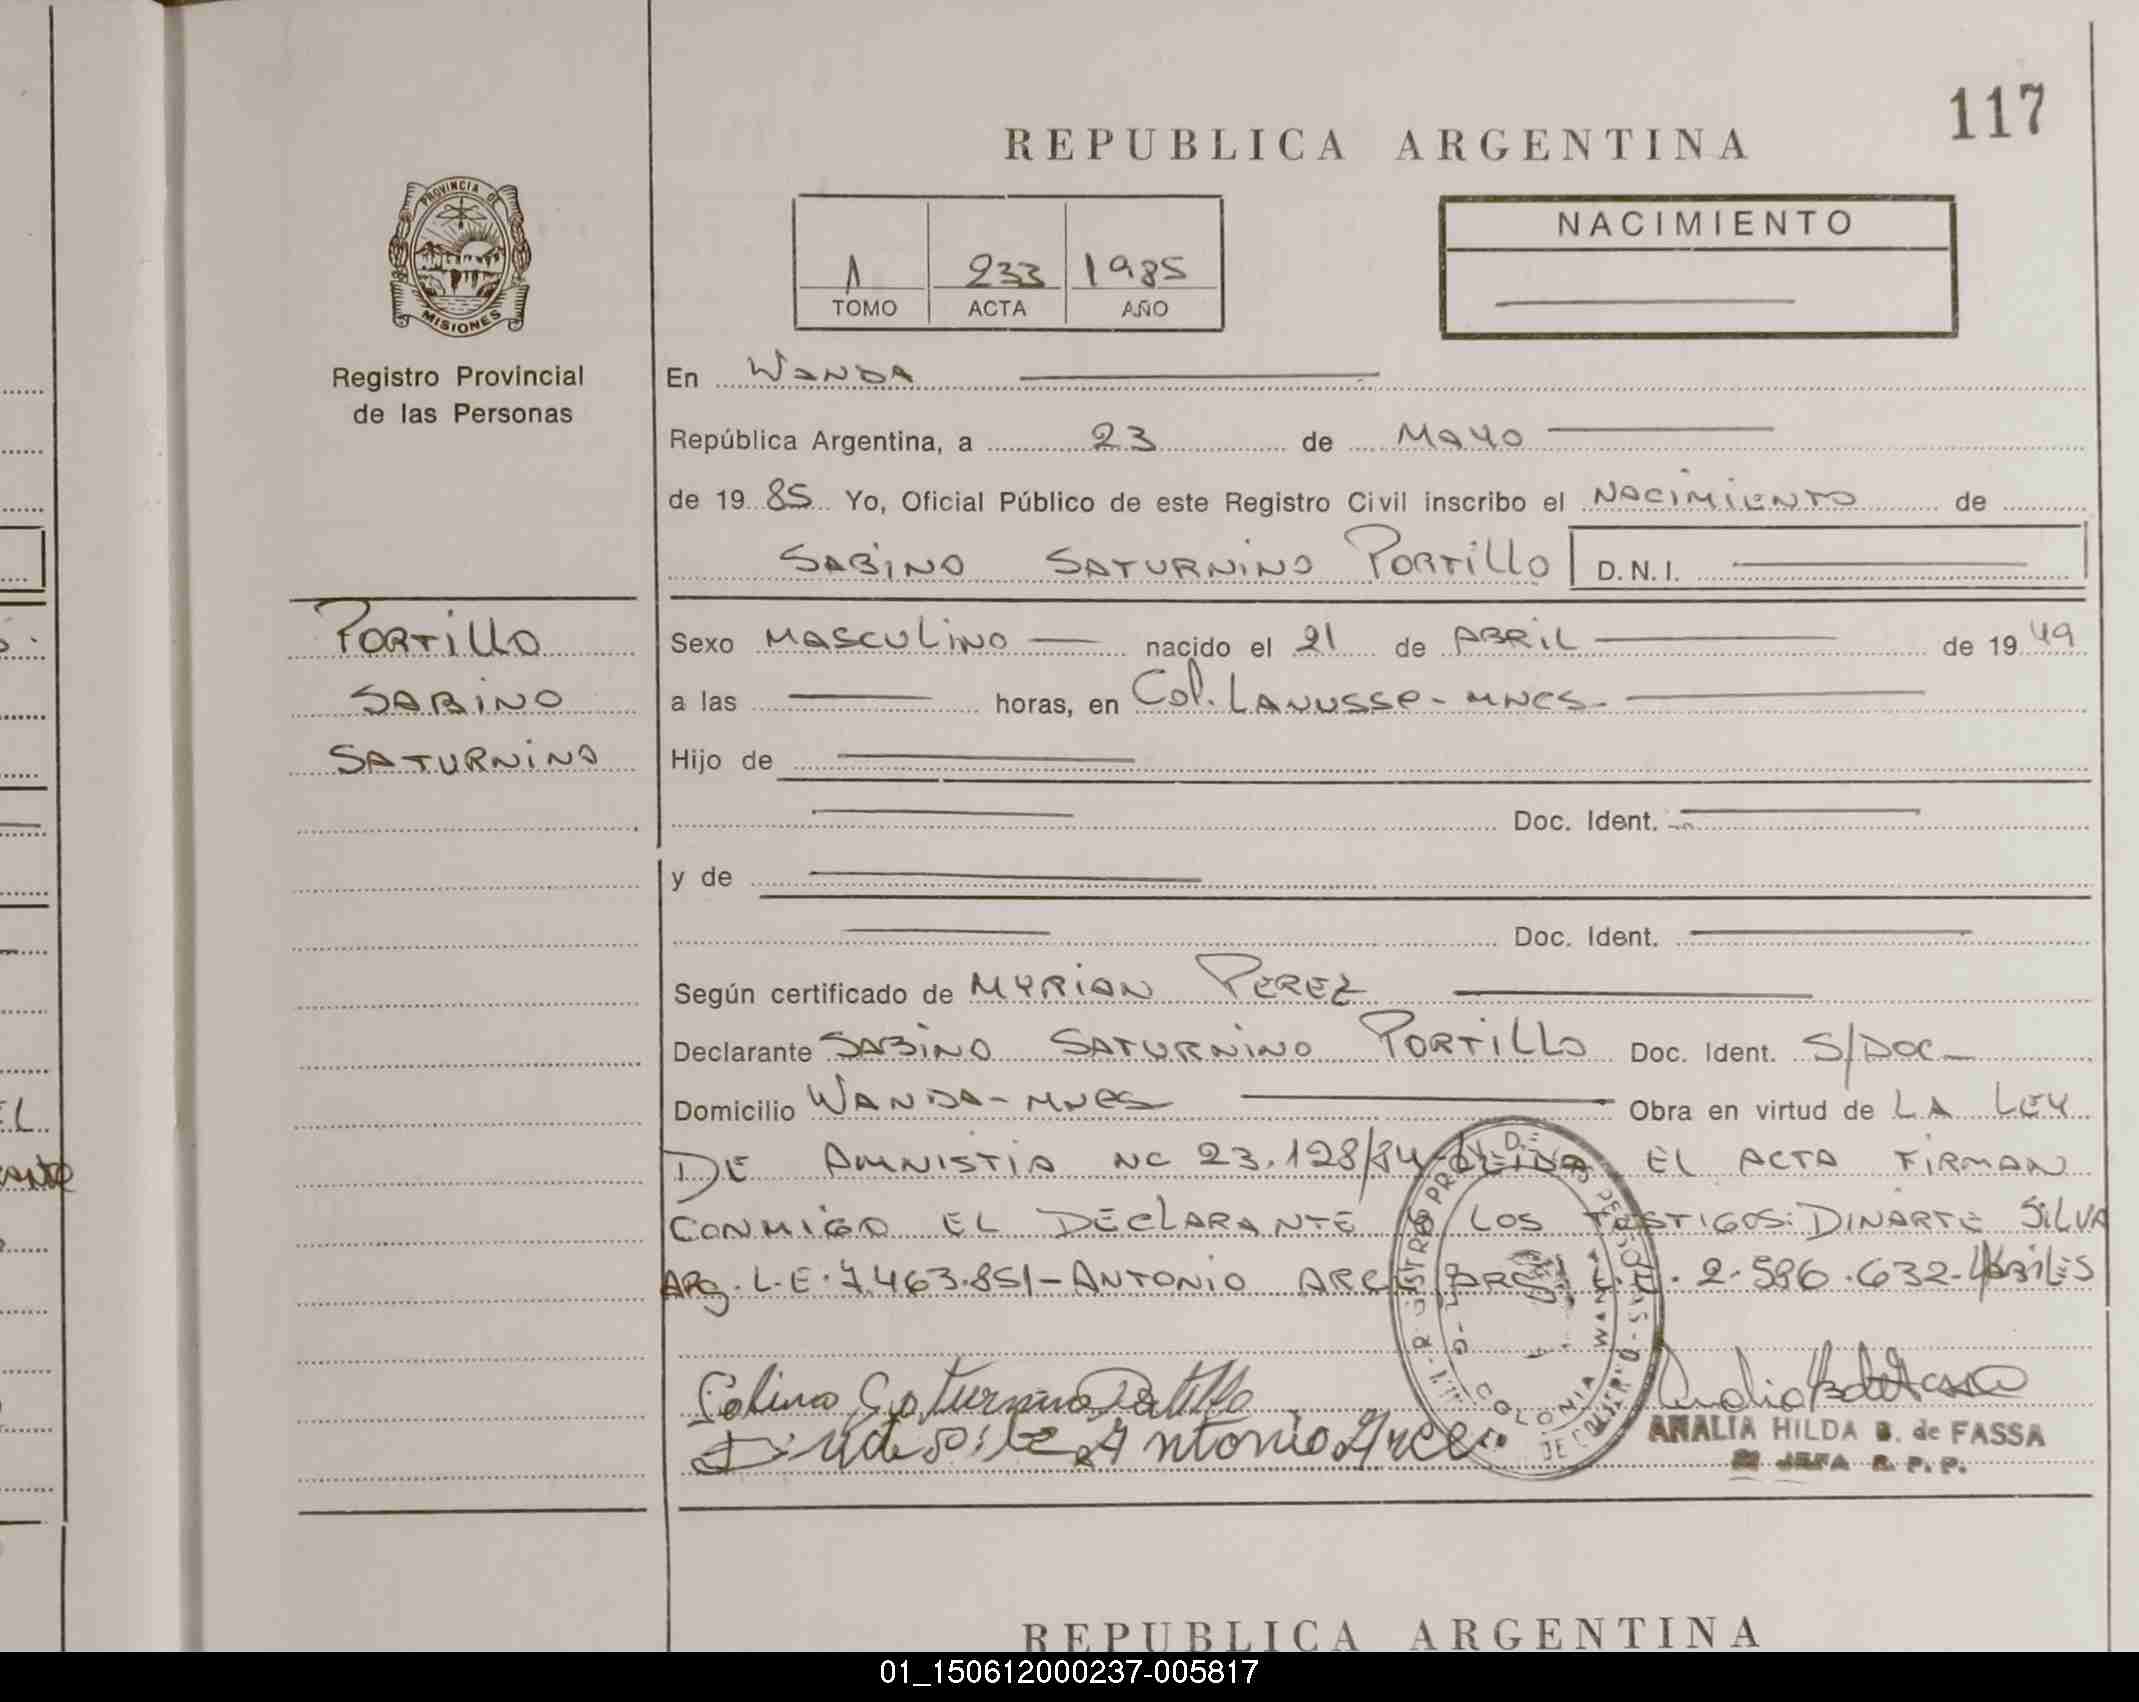 117
REPUBLICA ARGENTINA
PROVINCIA DE
MISIONES
Registro Provincial
de las Personas
1 233 1985
TOMO ACTA AÑO
NACIMIENTO
En WANDA
República Argentina, a 23 de MAYO
de 19 85 Yo, Oficial Público de este Registro Civil inscribo el NACIMIENTO de
SABINO SATURNINO PORTILLO D.N.I.
PORTILLO
SABINO
SATURNINO
Sexo MASCULINO nacido el 21 de ABRIL de 19 49
a las horas, en Col. LANUSSE - MNES -
Hijo de
Doc. Ident.
y de
Doc. Ident.
Según certificado de MYRIAN PEREZ
Declarante SABINO SATURNINO PORTILLO Doc. Ident. S/DOC
Domicilio WANDA - MNES Obra en virtud de LA LEY
DE AMNISTIA Nº 23.128/84 - LEIDA EL ACTA FIRMAN
CONMIGO EL DECLARANTE LOS TESTIGOS: DINARTE SILVA
ARg. L.E. 7.463.851 - ANTONIO ARCE ARG 2.586.632 - HABILES
Sabino Saturnino Portillo
Antonio Arce
COLONIA WANDA
ANALIA HILDA B. de FASSA
JEFA R. P. P.
REPUBLICA ARGENTINA
01_150612000237-005817